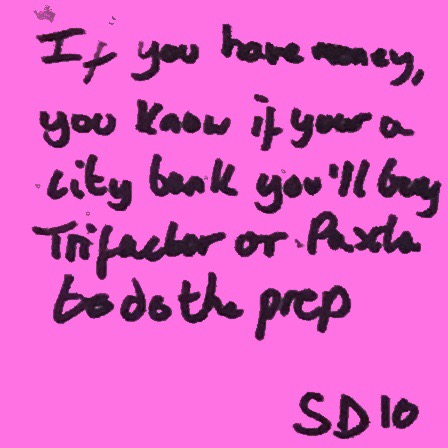 If you have money,
you know if your a
city bank you'll buy
Trifactor or Paxata
to do the prep
SD10